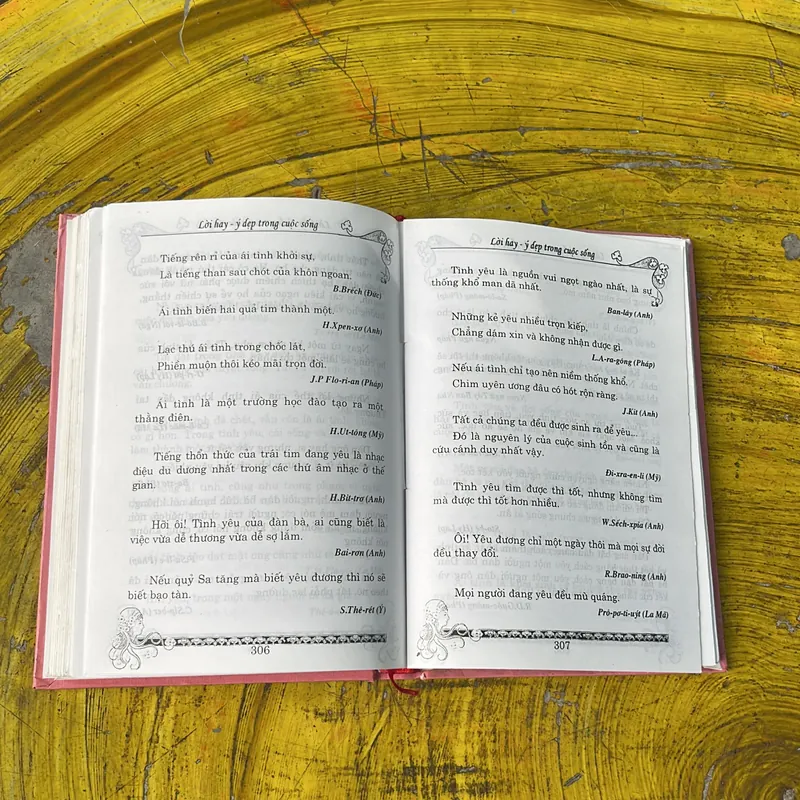 Lời hay - ý đẹp trong cuộc sống
Tiếng rên rỉ của ái tình khởi sự,
Là tiếng than sau chót của khôn ngoan.
B.Brếch (Đức)
Ái tình biến hai quả tim thành một.
H.Xpen-xơ (Anh)
Lạc thú ái tình trong chốc lát,
Phiền muộn thôi kéo mãi trọn đời.
J.P Flo-ri-an (Pháp)
Ái tình là một trường học đào tạo ra một
thằng điên.
H.Ut-tông (Mỹ)
Tiếng thổn thức của trái tim đang yêu là nhạc
điệu du dương nhất trong các thứ âm nhạc ở thế
gian.
H.Bít-trơ (Anh)
Hỡi ôi! Tình yêu của đàn bà, ai cũng biết là
việc vừa dễ thương vừa dễ sợ lắm.
Bai-rơn (Anh)
Nếu quỷ Sa tăng mà biết yêu đương thì nó sẽ
biết bạo tàn.
S.Thê-rét (Ý)
306
Lời hay - ý đẹp trong cuộc sống
Tình yêu là nguồn vui ngọt ngào nhất, là sự
thống khổ man dã nhất.
Ban-lây (Anh)
Những kẻ yêu nhiều trọn kiếp,
Chẳng dám xin và không nhận được gì.
L.A-ra-gông (Pháp)
Nếu ái tình chỉ tạo nên niềm thống khổ,
Chim uyên ương đâu có hót rộn ràng.
J.Kít (Anh)
Tất cả chúng ta đều được sinh ra để yêu...
Đó là nguyên lý của cuộc sinh tồn và cũng là
cứu cánh duy nhất vậy.
Đi-xra-en-li (Mỹ)
Tình yêu tìm được thì tốt, nhưng không tìm
mà được thì tốt hơn nhiều.
W.Sếch-xpia (Anh)
Ôi! Yêu đương chỉ một ngày thôi mà mọi sự đời
đều thay đổi.
R.Brao-ning (Anh)
Mọi người đang yêu đều mù quáng.
Prô-pơ-ti-uýt (La Mã)
307